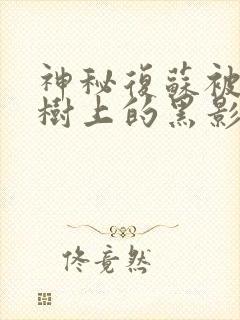 神秘復蘇被
樹上的黑影
佟竟然